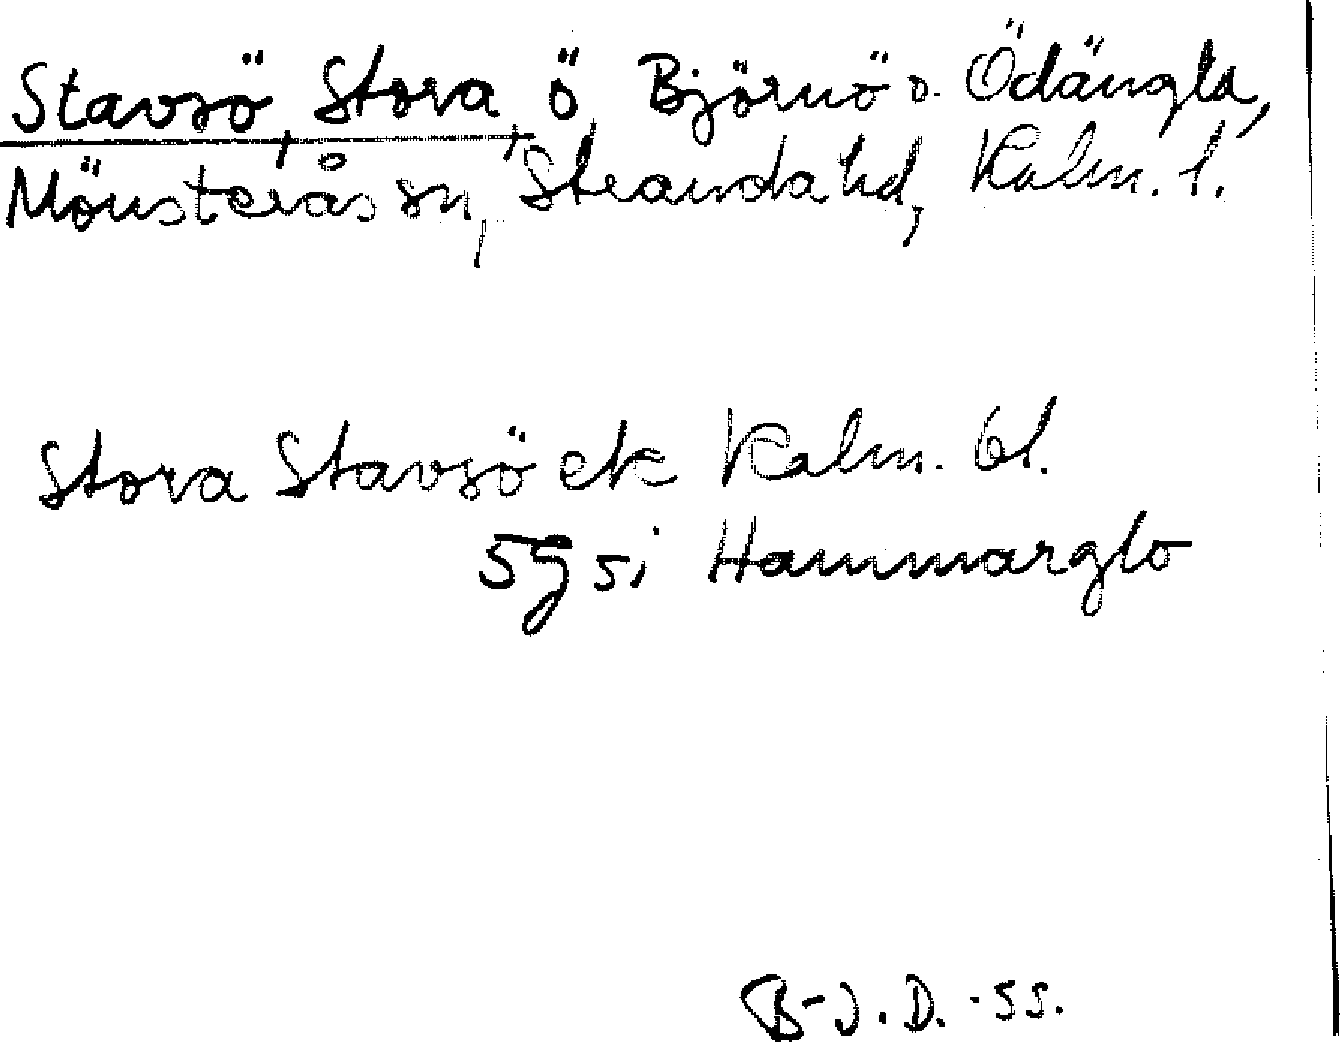 Stavsö, Stora, ö, Björnö o. Ödängla,
Mönsterås sn, Stranda hd, Kalm. l.
Stora Stavsö ek Kalm. bl.
5g si Hammarglo
B-J.D. -55.